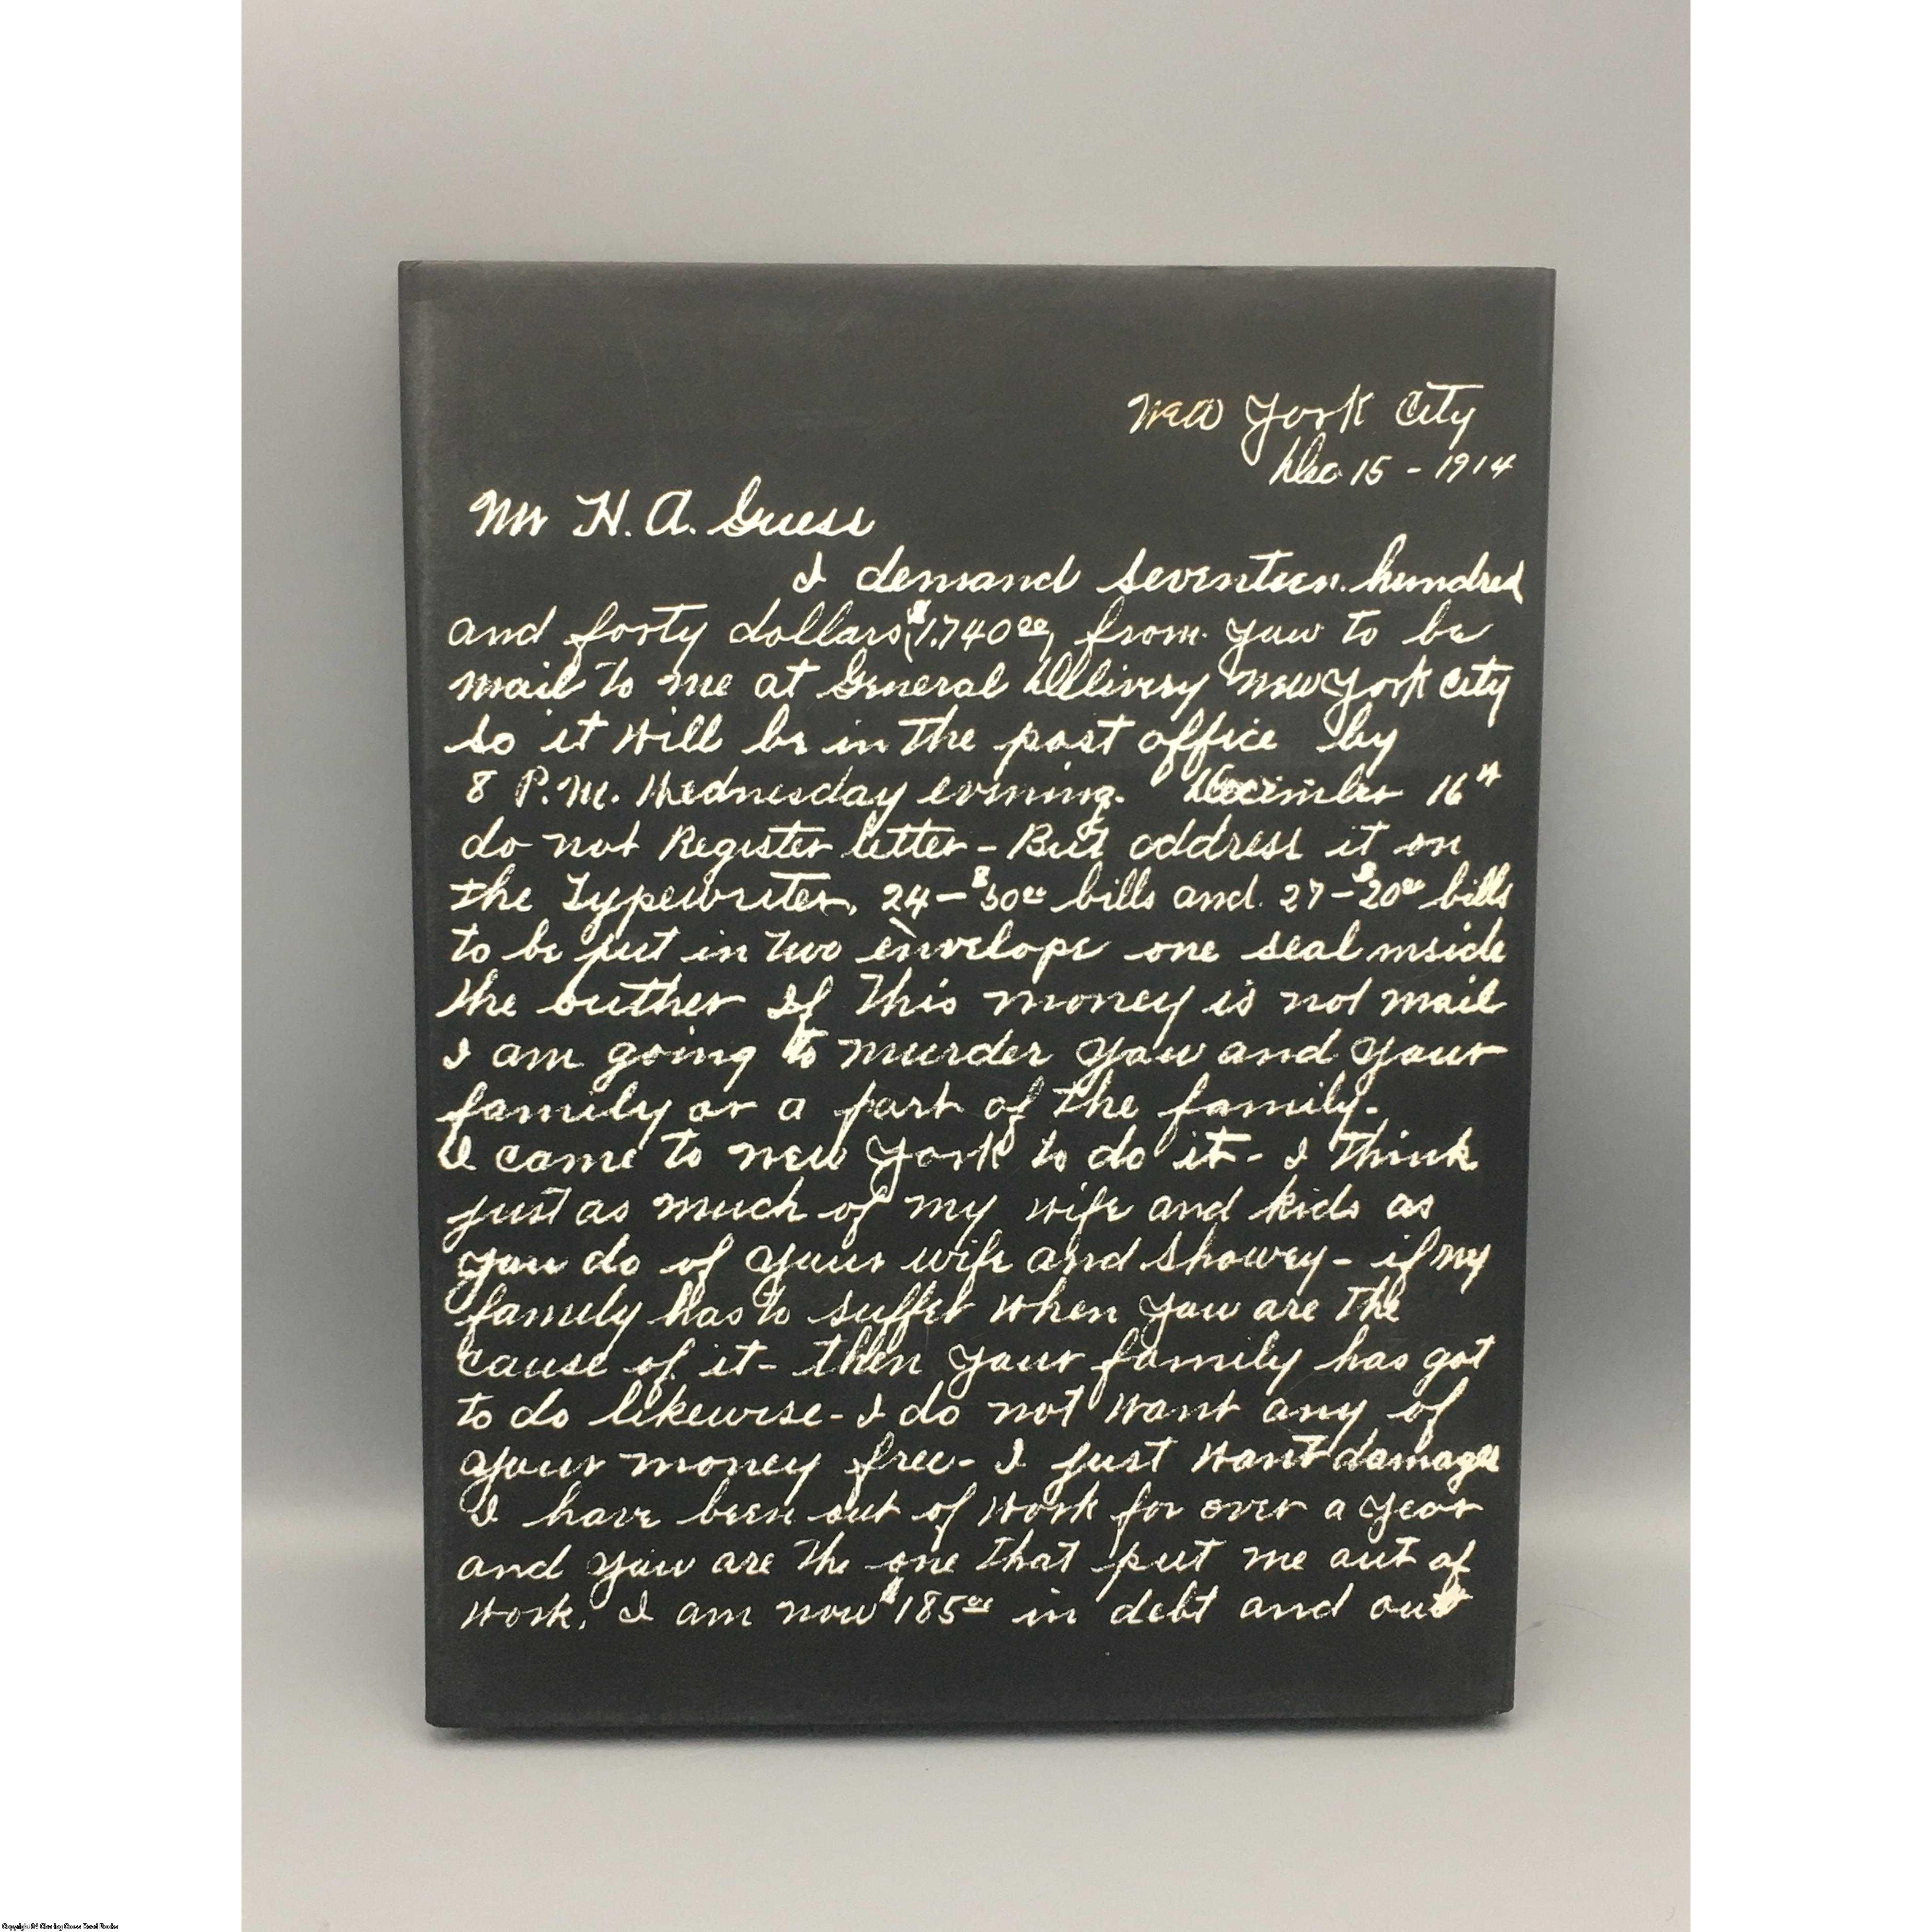 New York City
Dec 15 - 1914
Mr H. A. Guess
I demand seventeen hundred
and forty dollars ($1.74000) from yaw to be
mail to me at General Delivery New York City
so it will be in the post office by
8 P.M. Wednesday evening. December 16th
do not Register letter - But address it on
the Typewriter, 24 - $5000 bills and 27 - $2000 bills
to be put in two envelope one seal inside
the outher If this money is not mail
I am going to murder yaw and your
family or a part of the family.
I came to New York to do it - I think
just as much of my wife and kids as
you do of your wife and - if my
family has to suffer when yaw are the
cause of it - then your family has got
to do likewise - I do not want any of
your money free - I just want damages
I have been out of work for over a year
and yaw are the one that put me out of
work. I am now $18500 in debt and out
Copyright 84 Charing Cross Road Books